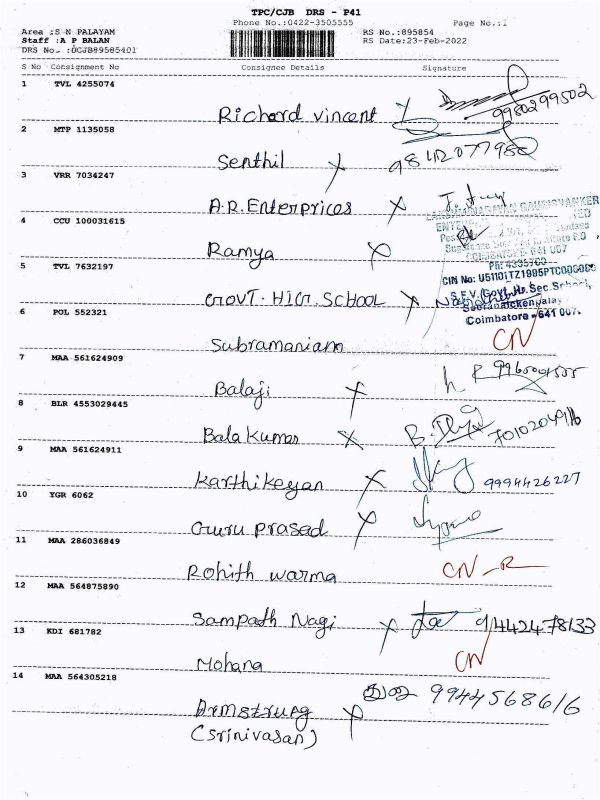 TPC/CJB DRS - P41
Phone No.:0422-3505555 Page No.:1
Area :S N PALAYAM RS No.:895854
Staff :A P BALAN RS Date:23-Feb-2022
DRS No. :DCJB89585401
S No Consignment No Consignee Details Signature
1 TVL 4255074
Richard vincent 9980299502
2 MTP 1135058
Senthil
3 VRR 7034247
A.R.Enterprices
4 CCU 100031615
Ramya
COIMBATORE 641 007
Ph: 4335700
5 TVL 7632197
CIN No: U51101TZ1995PTC006060
GOVT. HIGR. SCHOOL
S.F.V. (Govt. Hr. Sec. School,
Seeranaickenpalay
6 POL 552321 Coimbatore - 641 007.
Subramaniam CN
7 MAA 561624909
Balaji
8 BLR 4553029445
Bala Kumar
9 MAA 561624911
Karthikeyan 9994426227
10 YGR 6062
Guru prasad
11 MAA 286036849
Rohith warma CN - R
12 MAA 564875890
Sampath Nagi 9442478133
13 KDI 681782
Mohana CN
14 MAA 564305218
9944568616
Armstrung
(Srinivasan)